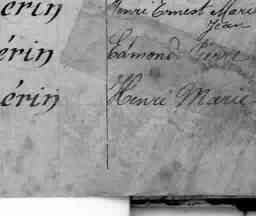 érin Henri Ernest Marie
Jean
érin Edmond Pierre
érin Henri Marie